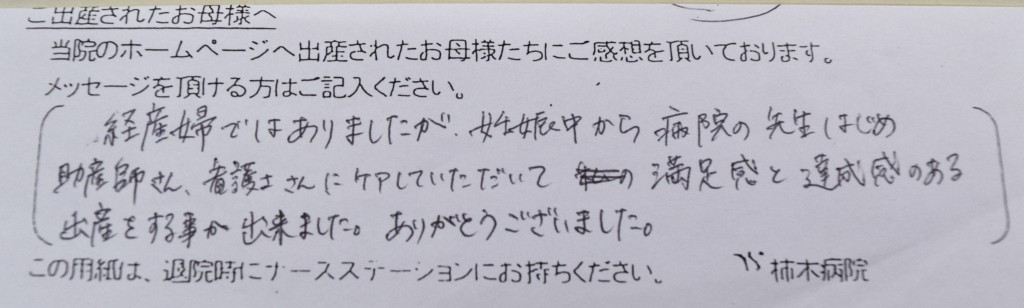 ご出産されたお母様へ
当院のホームページへ出産されたお母様たちにご感想を頂いております。
メッセージを頂ける方はご記入ください。
経産婦ではありましたが、妊娠中から病院の先生はじめ
助産師さん、看護士さんにケアしていただいて 満足感と達成感のある
出産をする事が出来ました。ありがとうございました。
この用紙は、退院時にナースステーションにお持ちください。 柿木病院